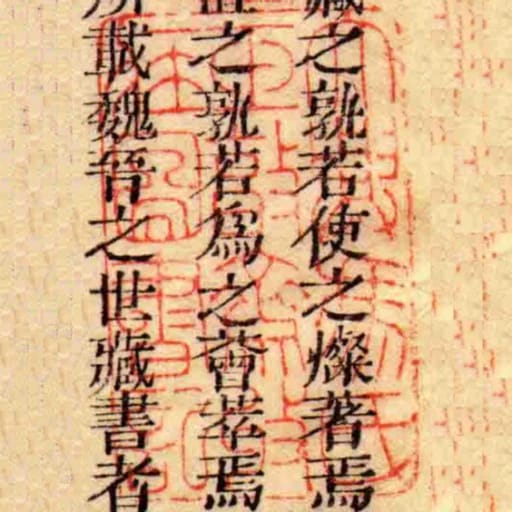 藏之孰若使之燦著焉
之孰若爲之薈萃焉
所載魏晉之世藏書者